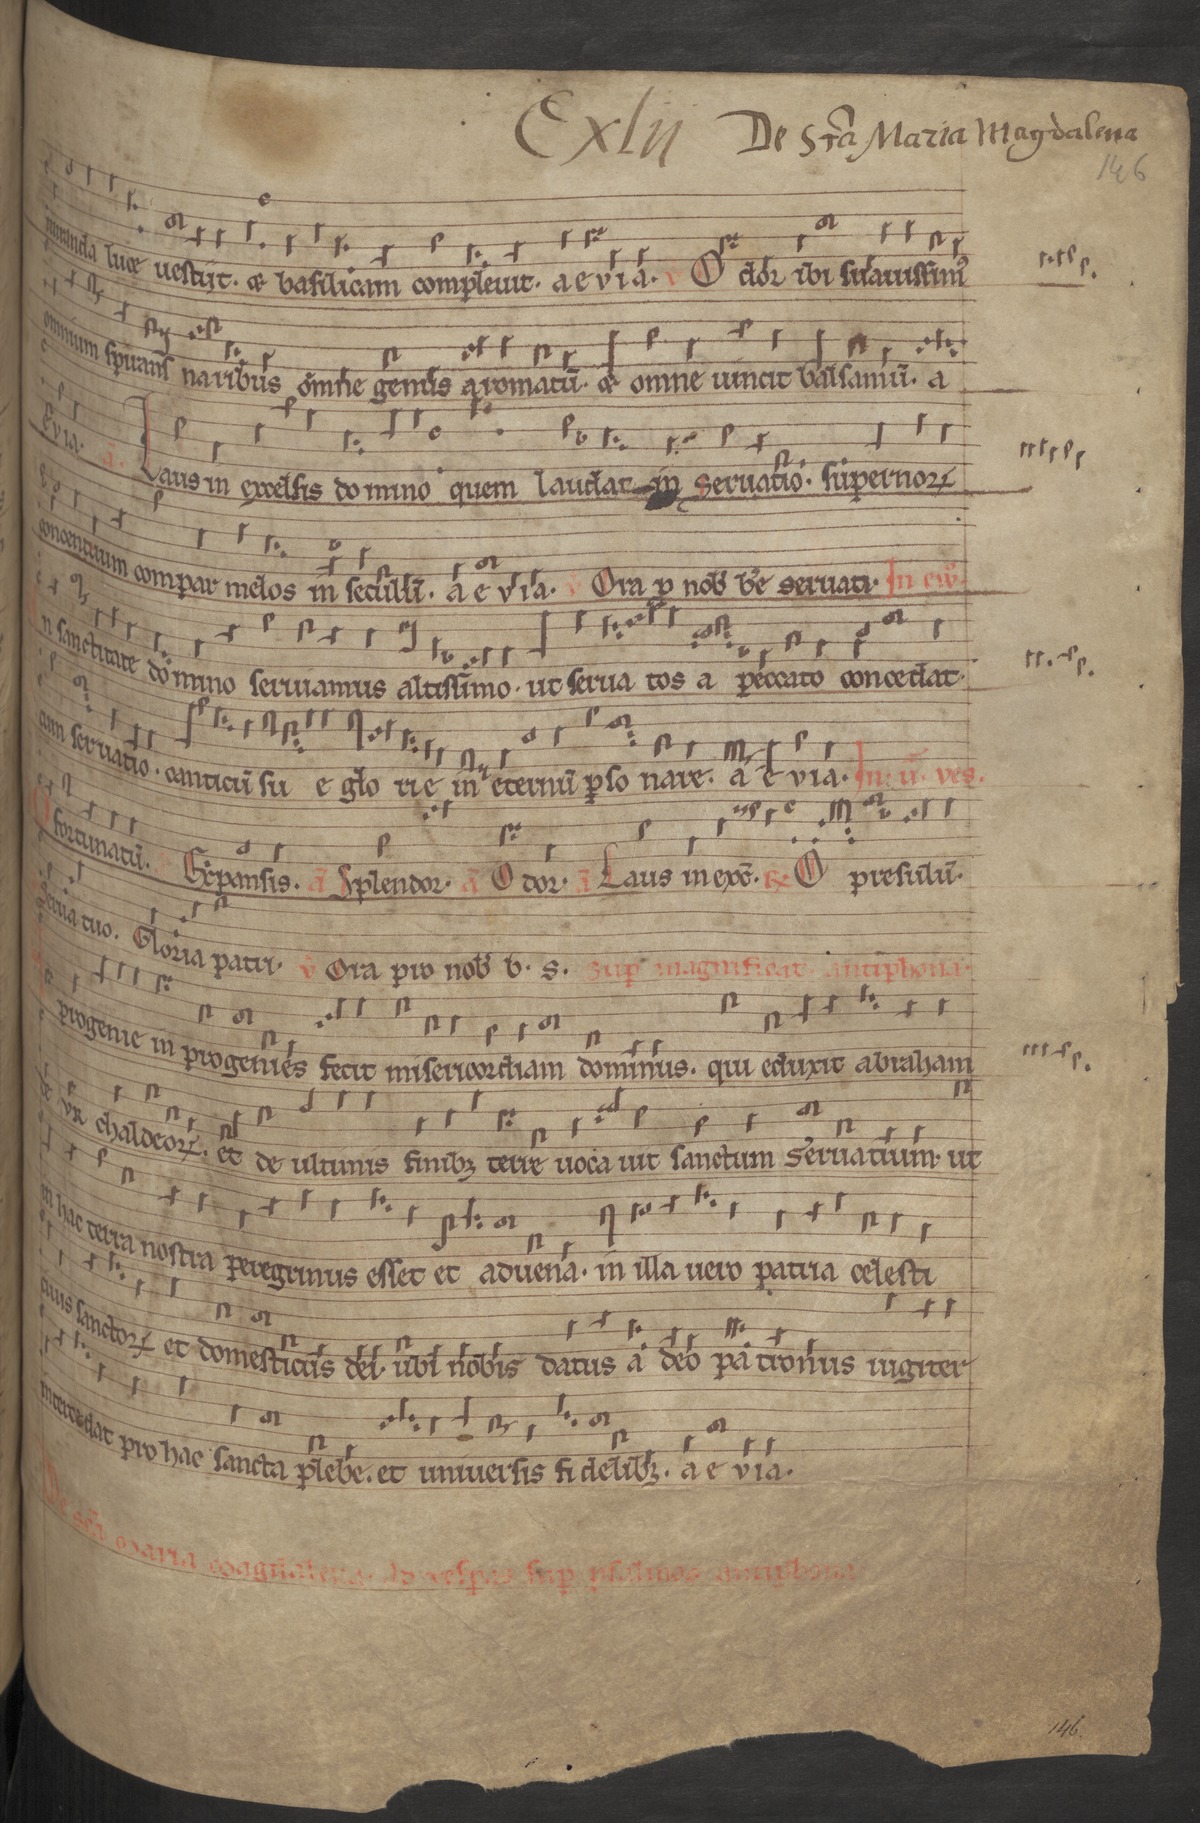 Cxlij De Sta Maria Magdalena
146
munda luce uestijt. et basilicam compleuit. a e v i a. v Odor ibi suauissimꝰ
omnium spirans naribus omne genus aromatū. et omne uincit balsamū. a
e v i a. ā. Laus in excelsis domino quem laudat in seruatio. supernoꝝ
concentuum compar melos in seculū. a e v i a. v Ora p nob be seruati. In ew̄.
In sanctitate domino seruiamus altissimo. ut serua tos a peccato concedat
cum seruatio. canticū su e glo rie in eternū p so nare. a e v i a. In. ii. ves.
O fortunatū. Expansis. ā Splendor. ā Odor. ā Laus in exc̄. ℟ O presulū.
Serua tuo. Gloria patri. v Ora pro nob b. s. Sup magnificat. antiphona.
progenie in progenies fecit misericordiam dominus. qui eduxit abraham
de vr chaldeoꝝ. et de ultimis finibꝫ terre uoca uit sanctum Seruatium. ut
in hac terra nostra peregrinus esset et aduena. in illa uero patria celesti
ciuis sanctoꝝ et domesticus dei. ubi nobis datus a deo patronus iugiter
intercedat pro hac sancta plebe. et uniuersis fidelibꝫ. a e v i a.
De scā maria magdalena. ad vespas sup psalmos antiphona
146.